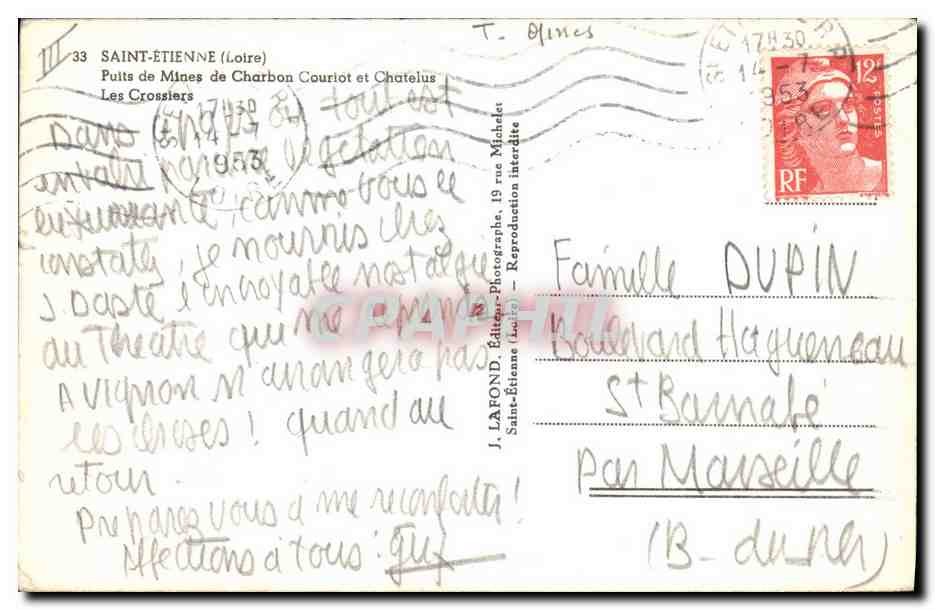 III
T. Mines
33 SAINT-ÉTIENNE (Loire)
Puits de Mines de Charbon Couriot et Chatelus
Les Crossiers
17H30
14-7
1953
LOIRE
17H30
14-7
1953
12F
POSTES
RF
Dans un pays où tout est
végétation
comme vous le
constatez, je nourris chez
J. Dasté l'incroyable nostalgie
du Théâtre qui me
Avignon n'arrangera pas
les choses ! quand au
retour.
Préparez vous à me réconforter !
Affections à tous : Guy
J. LAFOND, Éditeur-Photographe, 19 rue Michelet
Saint-Étienne (Loire) — Reproduction interdite
CPAPHIL
Famille DUPIN
Boulevard Hagueneau
St Barnabé
par Marseille
(B-du Rh)